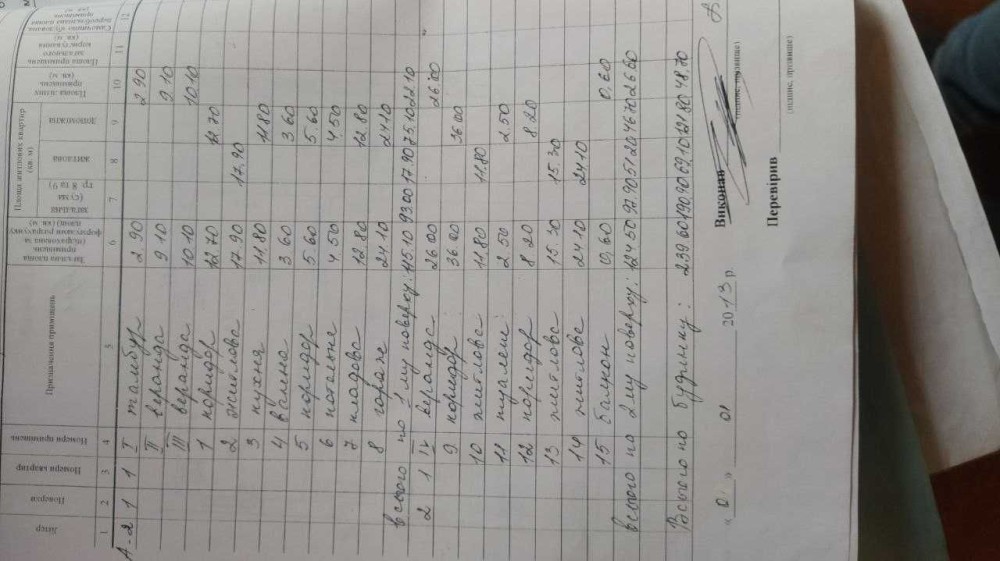 Літер | Поверхи | Номери квартир | Номери приміщень | Призначення приміщень | Загальна площа приміщень (підрахована за формулами розрахунку площ) (кв. м) | Площа житлових квартир (кв. м) | Площа літніх приміщень (кв. м) | Площа приміщень загального користування (кв. м) | Самочинно збудована площа приміщень
житлова | допоміжна
1 | 2 | 3 | 4 | 5 | 6 | 7 | 8 | 9 | 10 | 11 | 12
А-2 | 1 | 1 | I | тамбур | 2.90 | 2.90
II | веранда | 9.10 | 9.10
III | веранда | 10.10 | 10.10
1 | коридор | 12.70 | 12.70
2 | житлова | 17.90 | 17.90
3 | кухня | 11.80 | 11.80
4 | ванна | 3.60 | 3.60
5 | коридор | 5.60 | 5.60
6 | котельня | 4.50 | 4.50
7 | кладова | 12.80 | 12.80
8 | гараж | 24.10 | 24.10
всього по 1му поверху: 115.10 | 93.00 | 17.90 | 75.10 | 22.10
2 | 1 | IV | веранда | 26.00 | 26.00
9 | коридор | 36.00 | 36.00
10 | житлова | 11.80 | 11.80
11 | туалет | 2.50 | 2.50
12 | коридор | 8.20 | 8.20
13 | житлова | 15.30 | 15.30
14 | житлова | 24.10 | 24.10
15 | балкон | 0.60 | 0.60
всього по 2му поверху: 124.50 | 97.90 | 51.20 | 46.70 | 26.60
Всього по будинку: 239.60 | 190.90 | 69.10 | 121.80 | 48.70
" 0 " 01 2013 р. Виконав
(підпис, прізвище)
Перевірив
(підпис, прізвище)